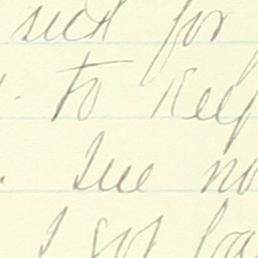 sick for
to Keep
See no
I got ba